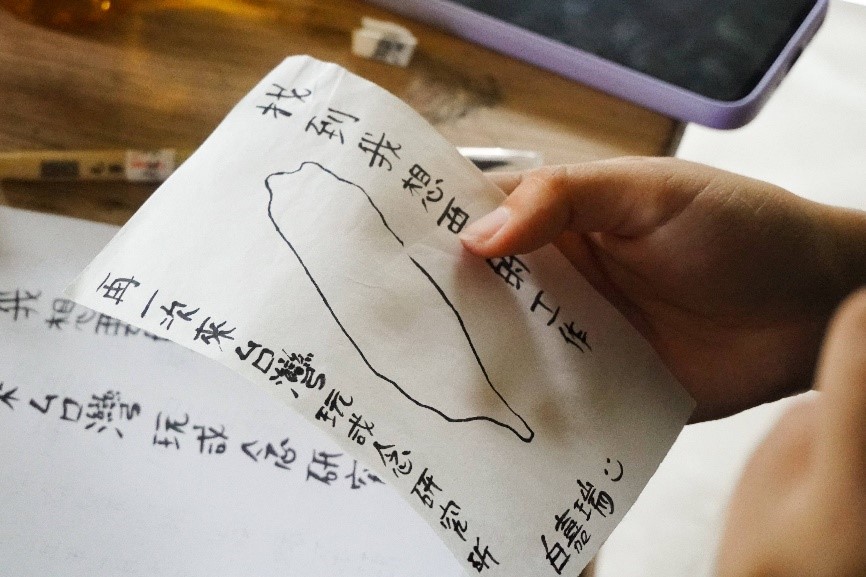 找到我想要的工作
再一次來台灣玩或念研究所
白嘉瑞 :)
我想要
來台灣玩或念研究